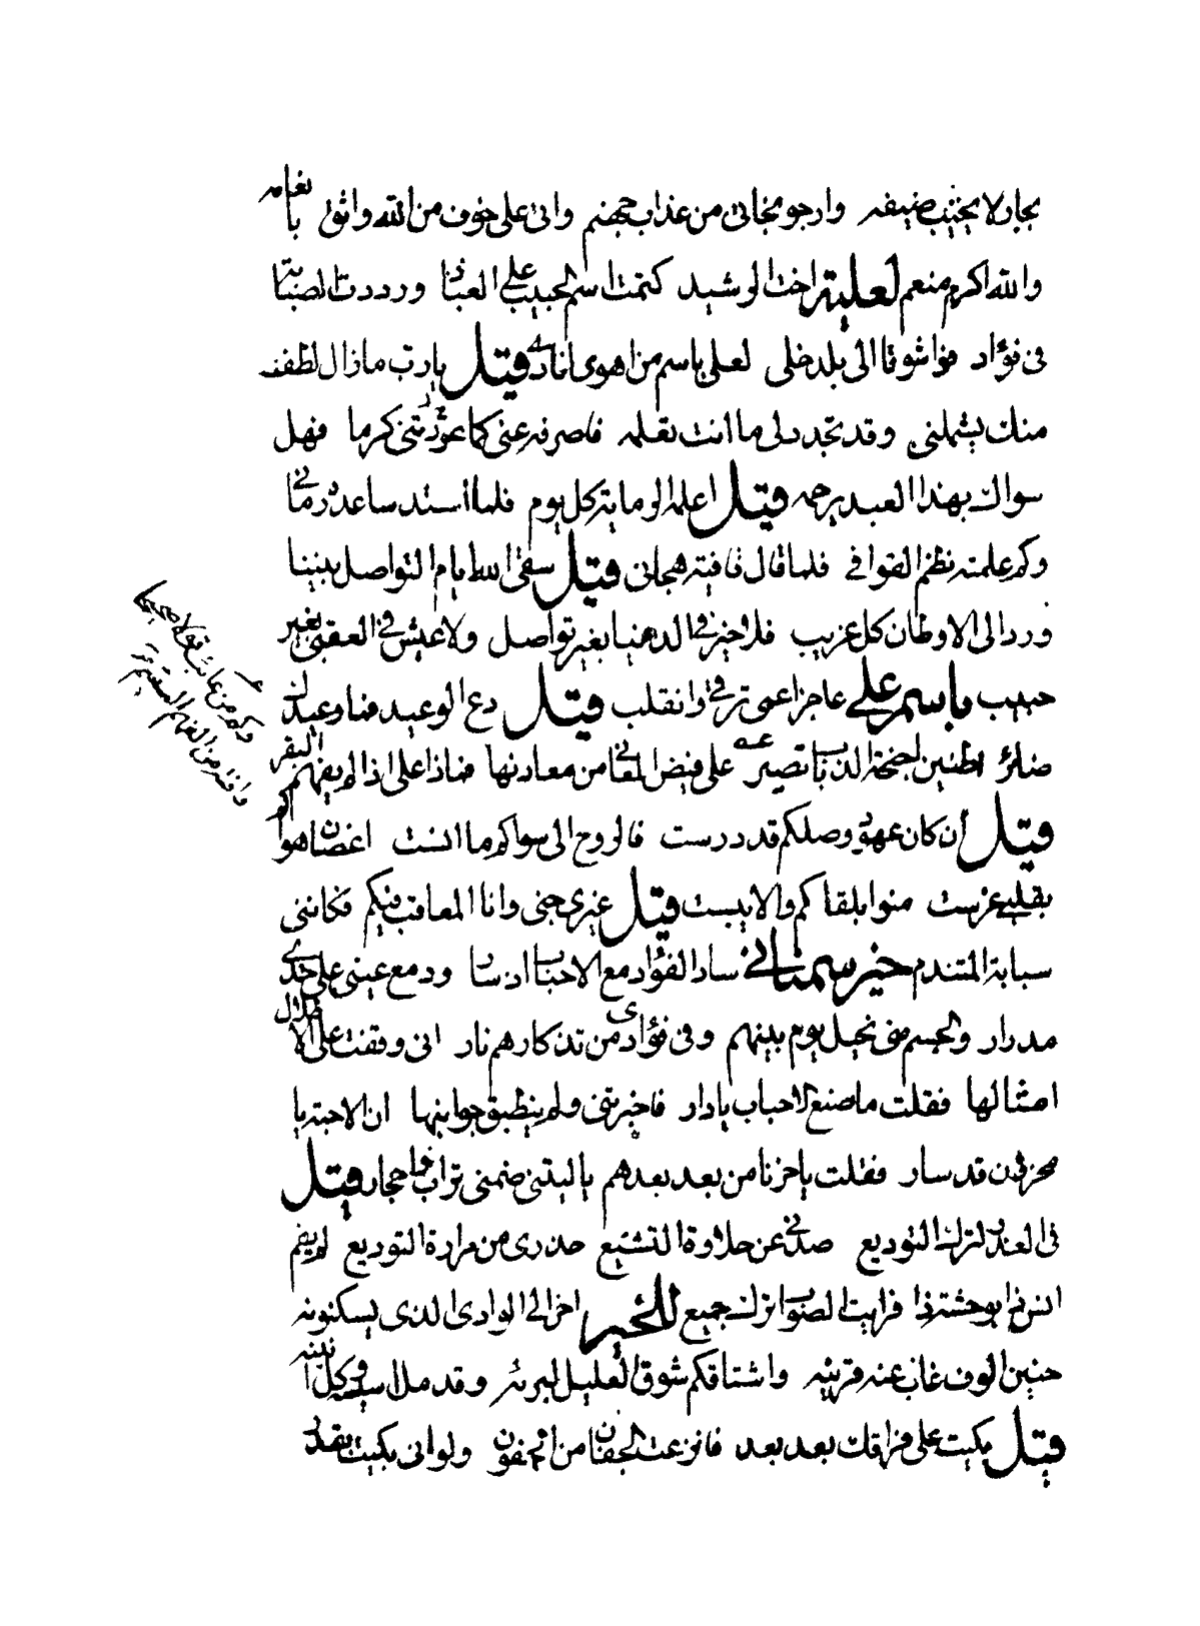 بجار لا يخيب ضيفه وارجو نجاتى من عذاب جهنم وانى على خوف من الله واثق بانعامه
والله اكرم منعم لعلية اخت الرشيد كتمت اسم الحبيب على العباد ورددت الصبابة
فى فؤاد فوا شوقا الى بلد خلى لعلى باسم من اهوى انادى قيل يا رب ما زال لطف
منك يشملنى وقد تجدد لى ما انت تعلمه فاصرفه عنى كما عودتنى كرما فهل
سواك بهذا العبد يرحمه قيل اعلمه الرماية كل يوم فلما استد ساعده رمانى
وكم علمته نظم القوافى فلما قال قافية هجانى قيل سقى الله ايام التواصل بيننا
ورد الى الاوطان كل غريب فلا خير فى الدنيا بغير تواصل ولا عيش فى العقبى بغير
حبيب باسم على عاجزا عمى ترقى وانقلب قيل دع الوعيد فما وعيدك
ضائر اطنين اجنحة الذباب تصير على فيض المعانى من معادنها فماذا على اذا لم يفهم البقر
قيل ان كان عهود وصلكم قد درست فالروح الى سواكم ما انست اغصان هواكم
بقلبى غرست منوا بلقاكم والا يبست قيل غيرى جنى وانا المعاقب فيكم فكاننى
سبابة المتندم سار الفؤاد مع الاحباب اذ ساروا ودمع عينى على خدى
مدرار والجسم منى نحيل يوم بينهم وفى فؤادى من تذكارهم نار انى وقفت على الاطلال
اسئالها فقلت ما صنع الاحباب يا دار فاخبرتنى ولم ينطق جوابيها ان الاحبة يا
محزون قد سار فقلت يا حزنا من بعد بعدهم يا ليتنى ضمنى تراب احجار قيل
فى العذر لترك التوديع صدنى عن حلاوة التشييع حذرى من مرارة التوديع لم يقم
انس ذا بوحشة ذا فرايت الصواب ترك جميع احن الى الوادى الذى يسكنونه
حنين الوف غاب عنه قرينه واشتاقكم شوق العليل لبرئه وقد مل
قيل بكيت على فراقك بعد بعد ولو انى بكيت بقدر
وكم من عائب قولا صحيحا
وافته من الفهم السقيم